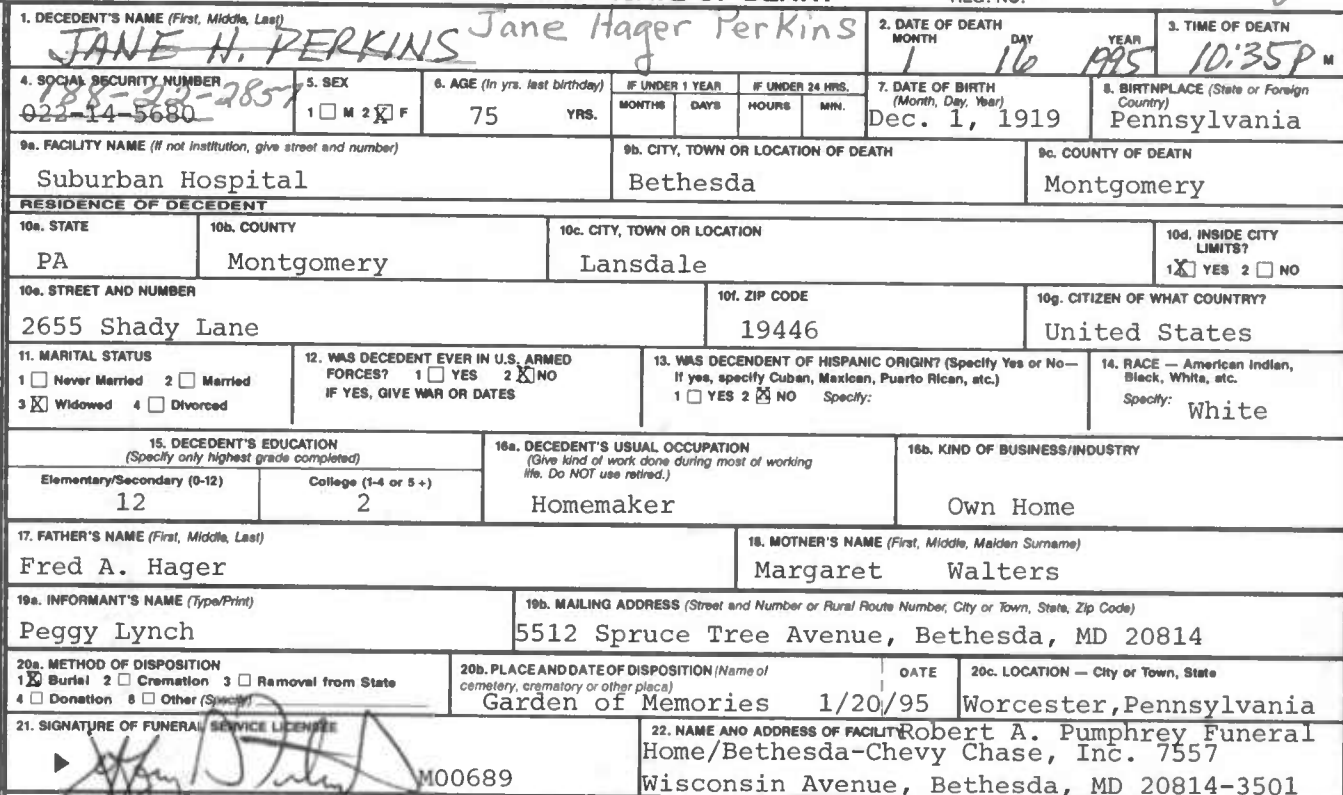 1. DECEDENT'S NAME (First, Middle, Last)
JANE H. PERKINS Jane Hager Perkins
2. DATE OF DEATH
MONTH DAY YEAR
1 16 1995
3. TIME OF DEATH
10:35P M
4. SOCIAL SECURITY NUMBER
188-22-2857
022-14-5680
5. SEX
1 ☐ M 2 ☒ F
6. AGE (In yrs. last birthday)
75 YRS.
IF UNDER 1 YEAR
MONTHS DAYS
IF UNDER 24 HRS.
HOURS MIN.
7. DATE OF BIRTH
(Month, Day, Year)
Dec. 1, 1919
8. BIRTNPLACE (State or Foreign
Country)
Pennsylvania
9a. FACILITY NAME (If not institution, give street and number)
Suburban Hospital
9b. CITY, TOWN OR LOCATION OF DEATH
Bethesda
9c. COUNTY OF DEATH
Montgomery
RESIDENCE OF DECEDENT
10a. STATE
PA
10b. COUNTY
Montgomery
10c. CITY, TOWN OR LOCATION
Lansdale
10d. INSIDE CITY
LIMITS?
1 ☒ YES 2 ☐ NO
10e. STREET AND NUMBER
2655 Shady Lane
10f. ZIP CODE
19446
10g. CITIZEN OF WHAT COUNTRY?
United States
11. MARITAL STATUS
1 ☐ Never Married 2 ☐ Married
3 ☒ Widowed 4 ☐ Divorced
12. WAS DECEDENT EVER IN U.S. ARMED
FORCES? 1 ☐ YES 2 ☒ NO
IF YES, GIVE WAR OR DATES
13. WAS DECENDENT OF HISPANIC ORIGIN? (Specify Yes or No—
If yes, specify Cuban, Mexican, Puerto Rican, etc.)
1 ☐ YES 2 ☒ NO Specify:
14. RACE — American Indian,
Black, White, etc.
Specify: White
15. DECEDENT'S EDUCATION
(Specify only highest grade completed)
Elementary/Secondary (0-12) College (1-4 or 5 +)
12 2
16a. DECEDENT'S USUAL OCCUPATION
(Give kind of work done during most of working
life. Do NOT use retired.)
Homemaker
16b. KIND OF BUSINESS/INDUSTRY
Own Home
17. FATHER'S NAME (First, Middle, Last)
Fred A. Hager
18. MOTNER'S NAME (First, Middle, Maiden Surname)
Margaret Walters
19a. INFORMANT'S NAME (Type/Print)
Peggy Lynch
19b. MAILING ADDRESS (Street and Number or Rural Route Number, City or Town, State, Zip Code)
5512 Spruce Tree Avenue, Bethesda, MD 20814
20a. METHOD OF DISPOSITION
1 ☒ Burial 2 ☐ Cremation 3 ☐ Ramoval from State
4 ☐ Donation 8 ☐ Other (Specify)
20b. PLACE AND DATE OF DISPOSITION (Name of DATE
cemetery, crematory or other placa)
Garden of Memories 1/20/95
20c. LOCATION — City or Town, State
Worcester, Pennsylvania
21. SIGNATURE OF FUNERAL SERVICE LICENSEE
M00689
22. NAME ANO ADDRESS OF FACILITY Robert A. Pumphrey Funeral
Home/Bethesda-Chevy Chase, Inc. 7557
Wisconsin Avenue, Bethesda, MD 20814-3501